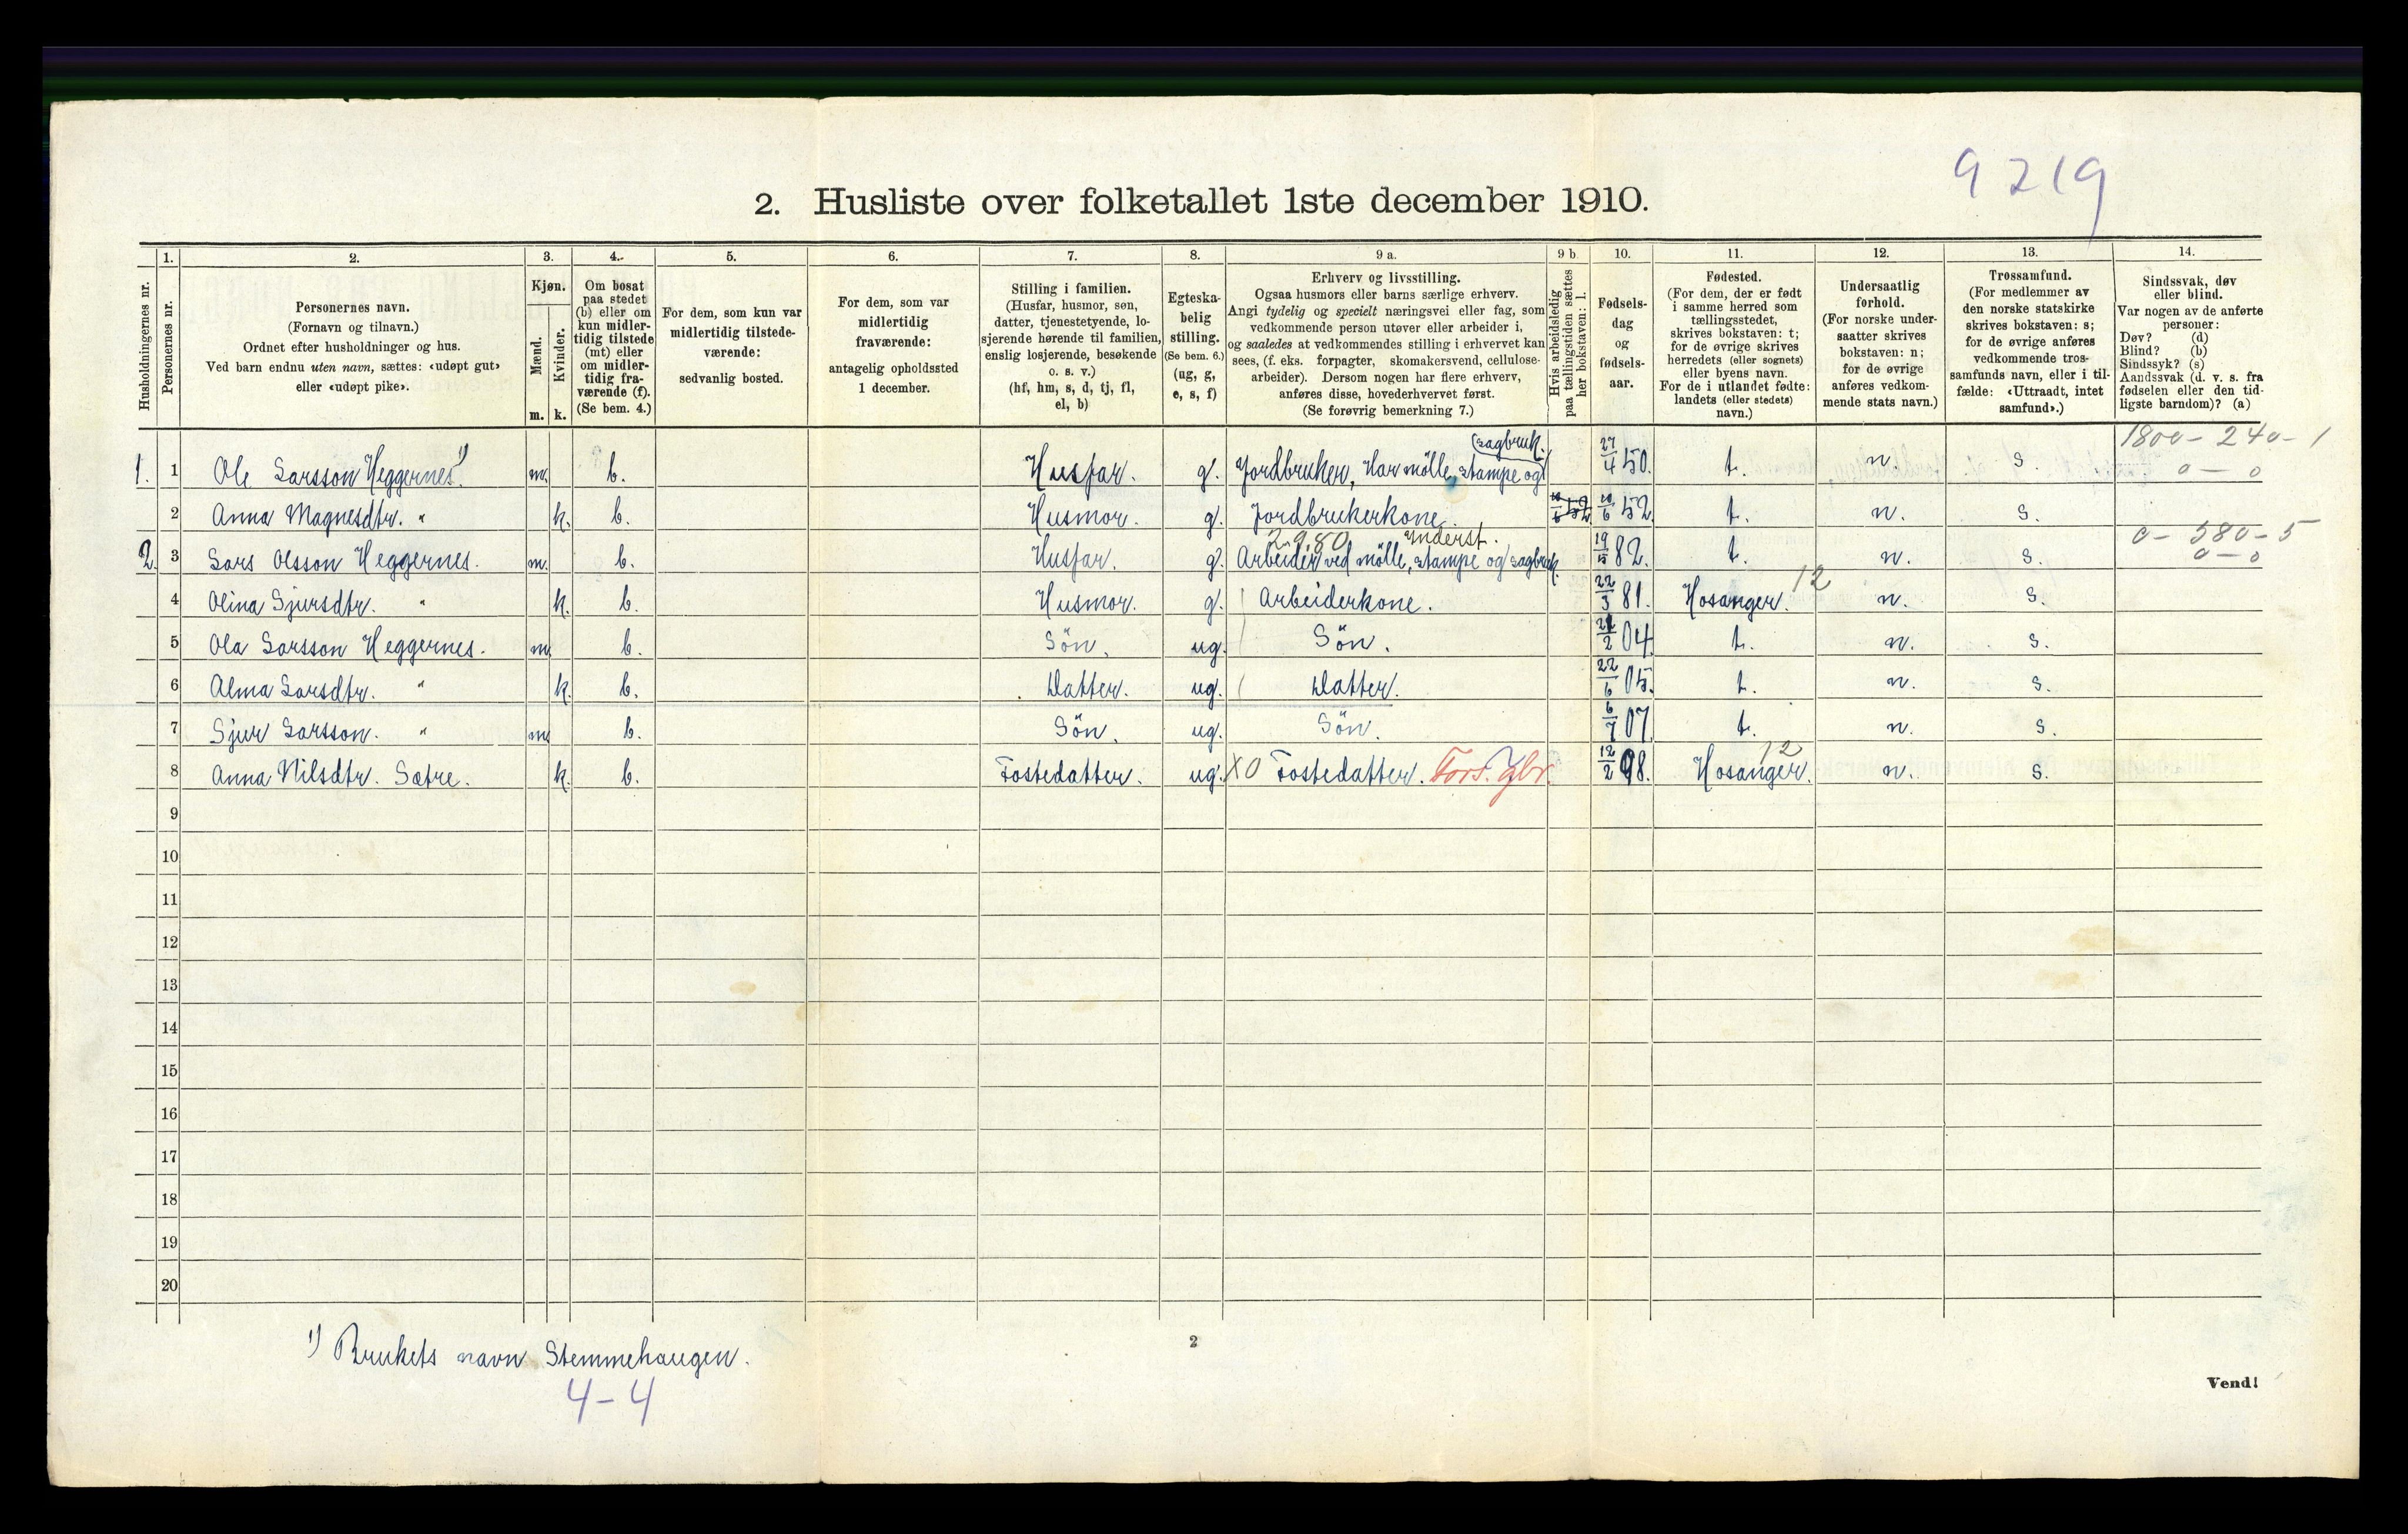 9 219
2. Husliste over folketallet 1ste december 1910.
1. 2. 3. 4. 5. 6. 7. 8. 9 a. 9 b. 10. 11. 12. 13. 14.
Husholdningernes nr.
Personernes nr.
Personernes navn.
(Fornavn og tilnavn.)
Ordnet efter husholdninger og hus.
Ved barn endnu uten navn, sættes: «udøpt gut»
eller «udøpt pike».
Kjøn.
Mænd.
Kvinder.
m. k.
Om bosat
paa stedet
(b) eller om
kun midler-
tidig tilstede
(mt) eller
om midler-
tidig fra-
værende (f).
(Se bem. 4.)
For dem, som kun var
midlertidig tilstede-
værende:
sedvanlig bosted.
For dem, som var
midlertidig
fraværende:
antagelig opholdssted
1 december.
Stilling i familien.
(Husfar, husmor, søn,
datter, tjenestetyende, lo-
sjerende hørende til familien,
enslig losjerende, besøkende
o. s. v.)
(hf, hm, s, d, tj, fl,
el, b)
Egteska-
belig
stilling.
(Se bem. 6.)
(ug, g,
e, s, f)
Erhverv og livsstilling.
Ogsaa husmors eller barns særlige erhverv.
Angi tydelig og specielt næringsvei eller fag, som
vedkommende person utøver eller arbeider i,
og saaledes at vedkommendes stilling i erhvervet kan
sees, (f. eks. forpagter, skomakersvend, cellulose-
arbeider). Dersom nogen har flere erhverv,
anføres disse, hovederhvervet først.
(Se forøvrig bemerkning 7.)
Hvis arbeidsledig
paa tællingstiden sættes
her bokstaven: l.
Fødsels-
dag
og
fødsels-
aar.
Fødested.
(For dem, der er født
i samme herred som
tællingsstedet,
skrives bokstaven: t;
for de øvrige skrives
herredets (eller sognets)
eller byens navn.
For de i utlandet fødte:
landets (eller stedets)
navn.)
Undersaatlig
forhold.
(For norske under-
saatter skrives
bokstaven: n;
for de øvrige
anføres vedkom-
mende stats navn.)
Trossamfund.
(For medlemmer av
den norske statskirke
skrives bokstaven: s;
for de øvrige anføres
vedkommende tros-
samfunds navn, eller i til-
fælde: «Uttraadt, intet
samfund».)
Sindssvak, døv
eller blind.
Var nogen av de anførte
personer:
Døv? (d)
Blind? (b)
Sindssyk? (s)
Aandssvak (d. v. s. fra
fødselen eller den tid-
ligste barndom)? (a)
sagbruk. 1800 - 240 - 1
1. 1 Ole Larsson Heggernes. 1) m. b. Husfar. g. Jordbruker, Har mölle, stampe og 27/4 50. t. n. s. 0 — 0
2 Anna Magnesdtr. " k. b. Husmor. g. Jordbrukerkone. 10/6 52. t. n. s.
2.9.80 Inderst. 0 - 580 - 5
2. 3 Lars Olsson Heggernes. m. b. Husfar. g. Arbeider ved mölle, stampe og sagbruk. 19/5 82. t. n. s. 0 — 0
4 Olina Sjursdtr. " k. b. Husmor. g. Arbeiderkone. 22/3 81. Hosanger. 12 n. s.
5 Ola Larsson Heggernes. m. b. Sön. ug. Sön. 21/2 04. t. n. s.
6 Alma Larsdtr. " k. b. Datter. ug. Datter. 22/6 05. t. n. s.
7 Sjur Larsson. " m. b. Sön. ug. Sön. 6/7 07. t. n. s.
8 Anna Nilsdtr. Sætre. k. b. Fostedatter. ug. X0 Fostedatter. Fors. gbr. 12/2 98. Hosanger. 12 n. s.
9
10
11
12
13
14
15
16
17
18
19
20
1) Brukets navn Stemmehaugen.
2
4-4
Vend!